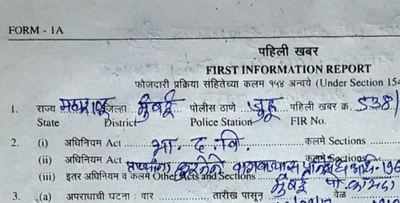 FORM - 1A
पहिली खबर
FIRST INFORMATION REPORT
फौजदारी प्रक्रिया संहितेच्या कलम १५४ अन्वये (Under Section 154
1. राज्य महाराष्ट्र जिल्हा मुंबई पोलीस ठाणे जुहू पहिली खबर क्र. 538/
State District Police Station FIR No.
2. (i) अधिनियम Act भा. द. वि. कलमे Sections
(ii) अधिनियम Act कलमे Sections
(iii) इतर अधिनियम व कलम Other Acts and Sections मुंबई पो. कायदा
3. (a) अपराधाची घटना : वार तारीख पासून वेळ